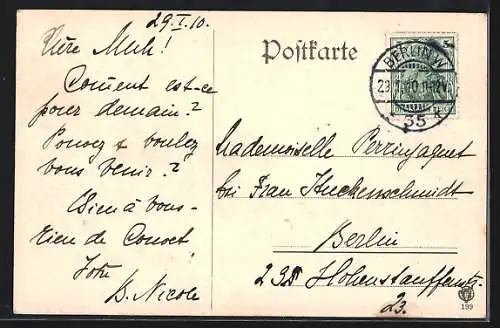 29.I.10.
Chère Mich!
Coment est-ce
pour demain?
Pouvez & voulez
vous venir?
Bien à vous-
rien de
Votre
B. Nicole
Postkarte
BERLIN W
35
Mademoiselle Perrinjaquet
bei Frau Huckenschmidt
Berlin
Hohenstaufenstr.
23.
199